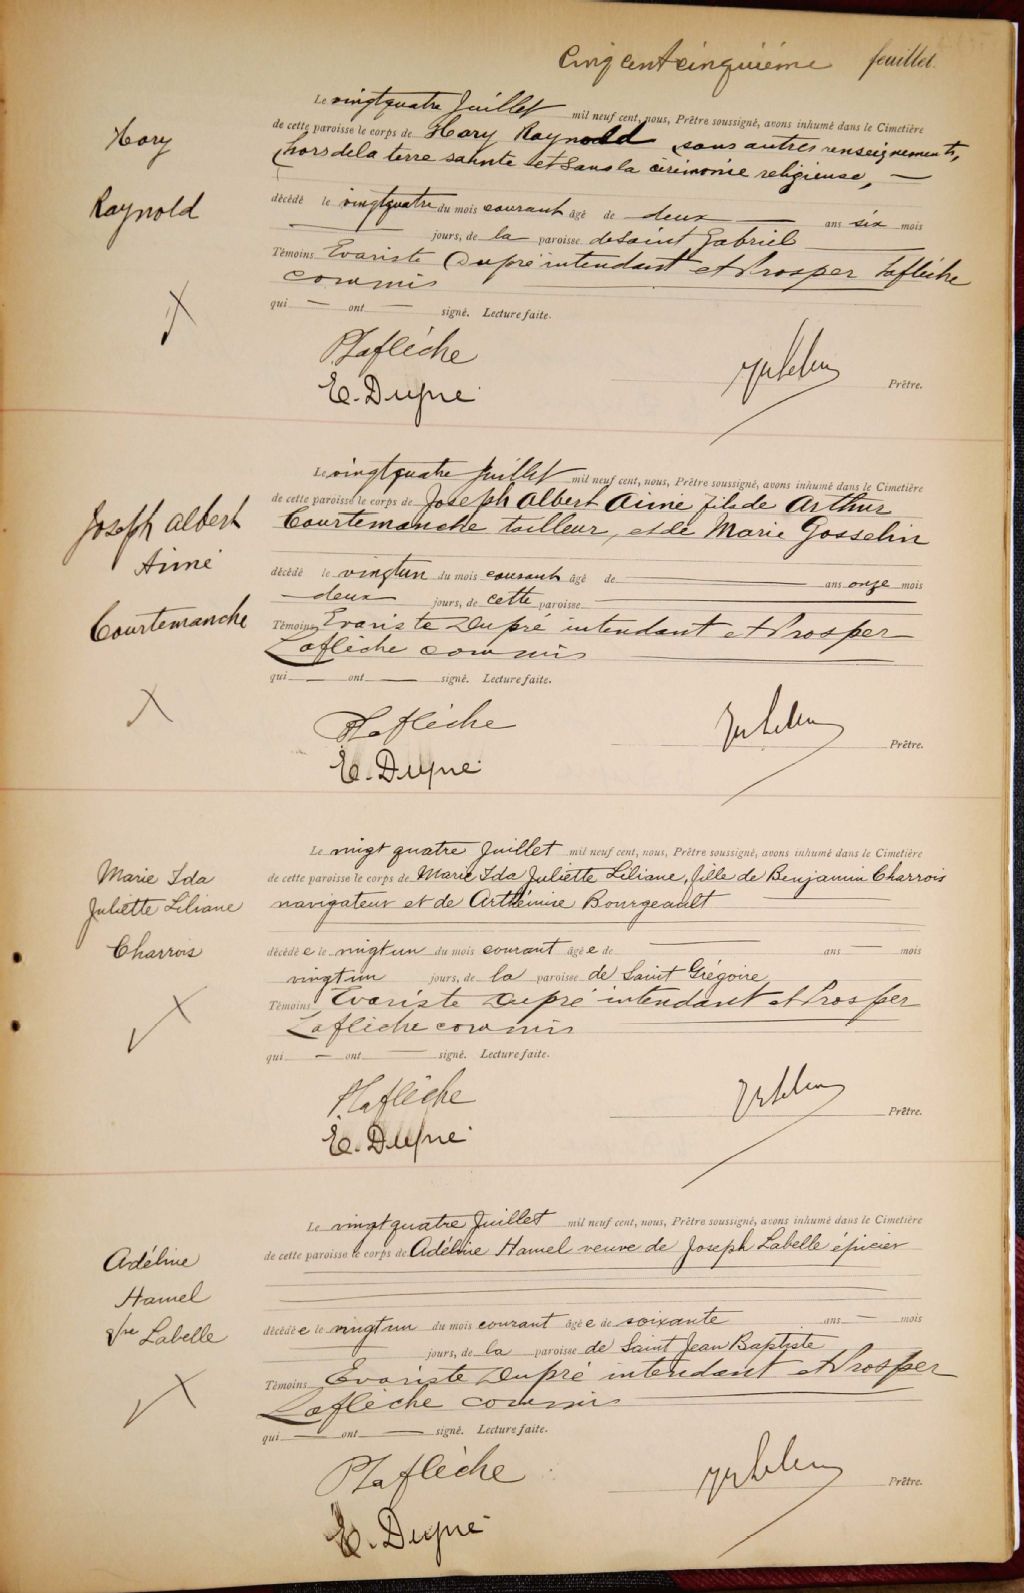 Cinq cent cinquième feuillet.
Hary
Raynold
Le vingtquatre Juillet mil neuf cent, nous, Prêtre soussigné, avons inhumé dans le Cimetière
de cette paroisse le corps de Hary Raynold sans autres renseignements,
hors de la terre sainte et sans la cérémonie religieuse, —
décédé le vingtquatre du mois courant âgé de deux — ans six mois
— jours, de la paroisse de Saint Gabriel
Témoins Evariste Dupré intendant et Prosper Laflèche
commis
qui — ont — signé. Lecture faite.
PLaflèche
E. Dupré
Prêtre.
Joseph Albert
Aimé
Courtemanche
Le vingtquatre Juillet mil neuf cent, nous, Prêtre soussigné, avons inhumé dans le Cimetière
de cette paroisse le corps de Joseph Albert Aimé fils de Arthur
Courtemanche tailleur, et de Marie Gosselin
décédé le vingtun du mois courant âgé de — ans onze mois
deux jours, de cette paroisse
Témoins Evariste Dupré intendant et Prosper
Laflèche commis
qui — ont — signé. Lecture faite.
PLaflèche
E. Dupré
Prêtre.
Marie Ida
Juliette Liliane
Charrois
Le vingt quatre Juillet mil neuf cent, nous, Prêtre soussigné, avons inhumé dans le Cimetière
de cette paroisse le corps de Marie Ida Juliette Liliane, fille de Benjamin Charrois
navigateur et de Arthémise Bourgeault
décédée le vingtun du mois courant âgée de — ans — mois
vingtun jours, de la paroisse de Saint Grégoire
Témoins Evariste Dupré intendant et Prosper
Laflèche commis
qui — ont — signé. Lecture faite.
PLaflèche
E. Dupré
Prêtre.
Adéline
Hamel
Labelle
Le vingtquatre Juillet mil neuf cent, nous, Prêtre soussigné, avons inhumé dans le Cimetière
de cette paroisse le corps de Adéline Hamel veuve de Joseph Labelle épicier
décédée le vingtun du mois courant âgée de soixante ans — mois
— jours, de la paroisse de Saint Jean Baptiste
Témoins Evariste Dupré intendant et Prosper
Laflèche commis
qui — ont — signé. Lecture faite.
PLaflèche
E. Dupré
Prêtre.